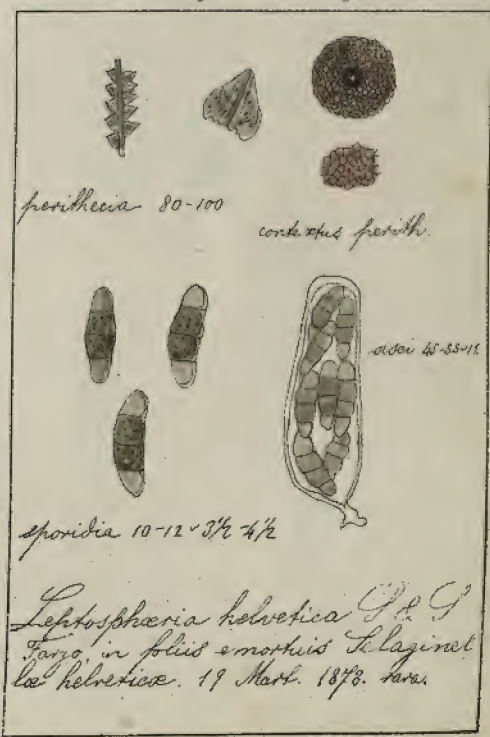 perithecia 80-100
contextus perith.
asci 45-55 v 11
sporidia 10-12 v 3½-4½
Leptosphæria helvetica S & S
Farzo, in foliis emortuis Selaginel
læ helveticæ. 19 Mart. 1873. rara.